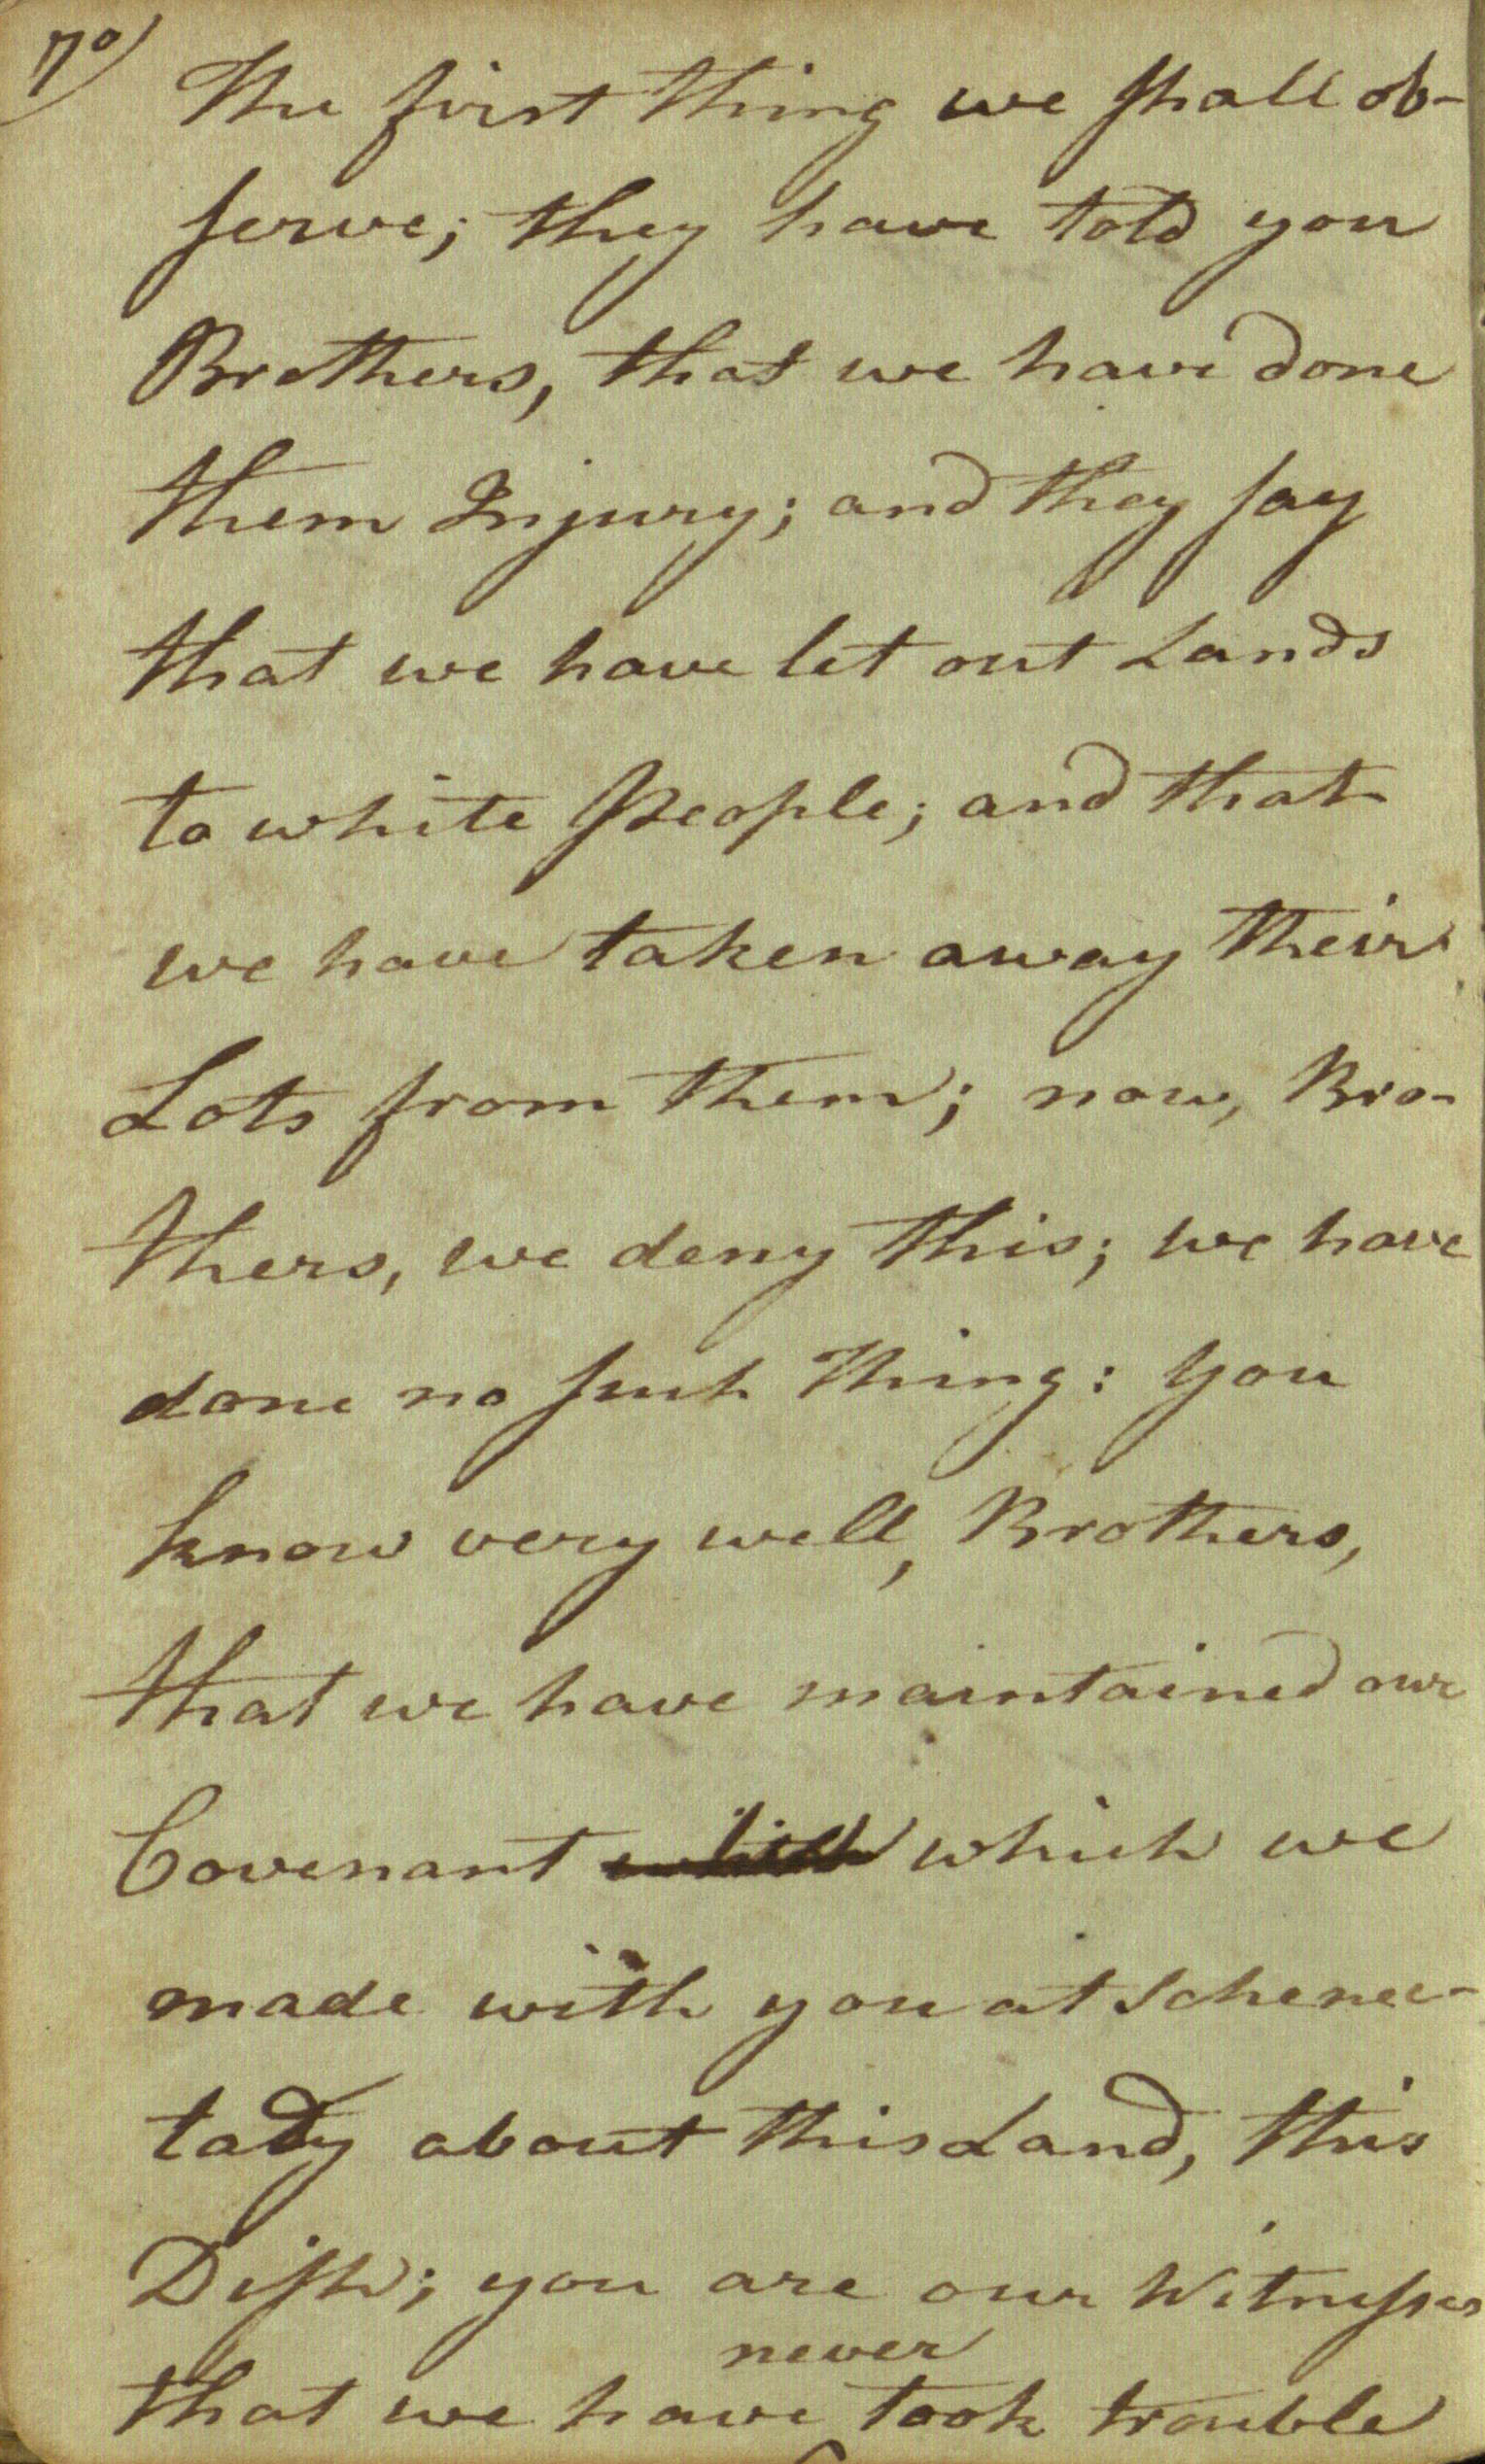 70) The first thing we shall ob-
serve; they have told you
Brothers, that we have done
them Injury; and they say
that we have let out Lands
to white People; and that
we have taken away their
Lots from them; now, Bro-
thers, we deny this; we have
done no such Thing: You
know very well, Brothers,
that we have maintained our
Covenant which which we
made with you at Schenec-
tady about this Land, this
Dish; you are our Witnesses
never
that we have took trouble